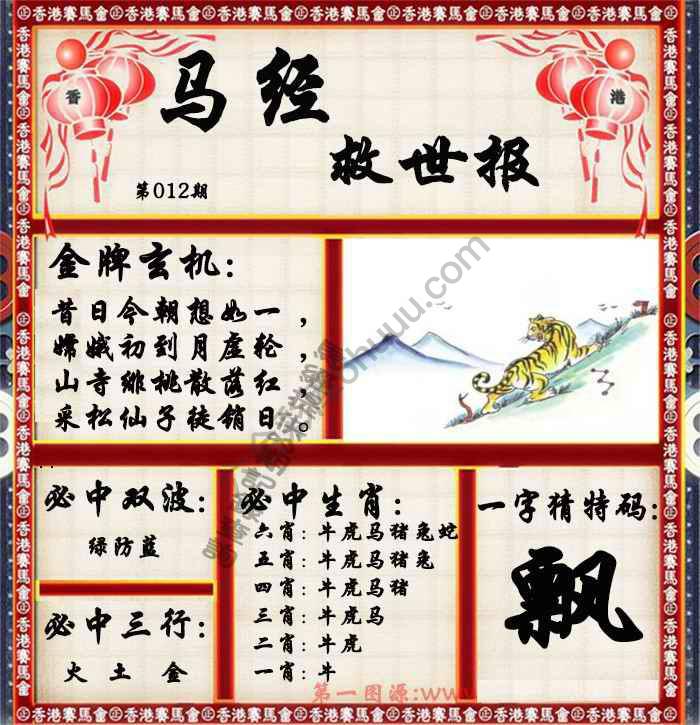 香港賽馬會
香 港
马经
救世报
第012期
金牌玄机：
昔日今朝想如一，
嫦娥初到月虚轮，
山寺绯桃散落红，
采松仙子徒销日。
必中双波：
绿防蓝
必中三行：
火 土 金
必中生肖：
六肖：牛虎马猪兔蛇
五肖：牛虎马猪兔
四肖：牛虎马猪
三肖：牛虎马
二肖：牛虎
一肖：牛
一字猜特码：
飘
第一图源:www